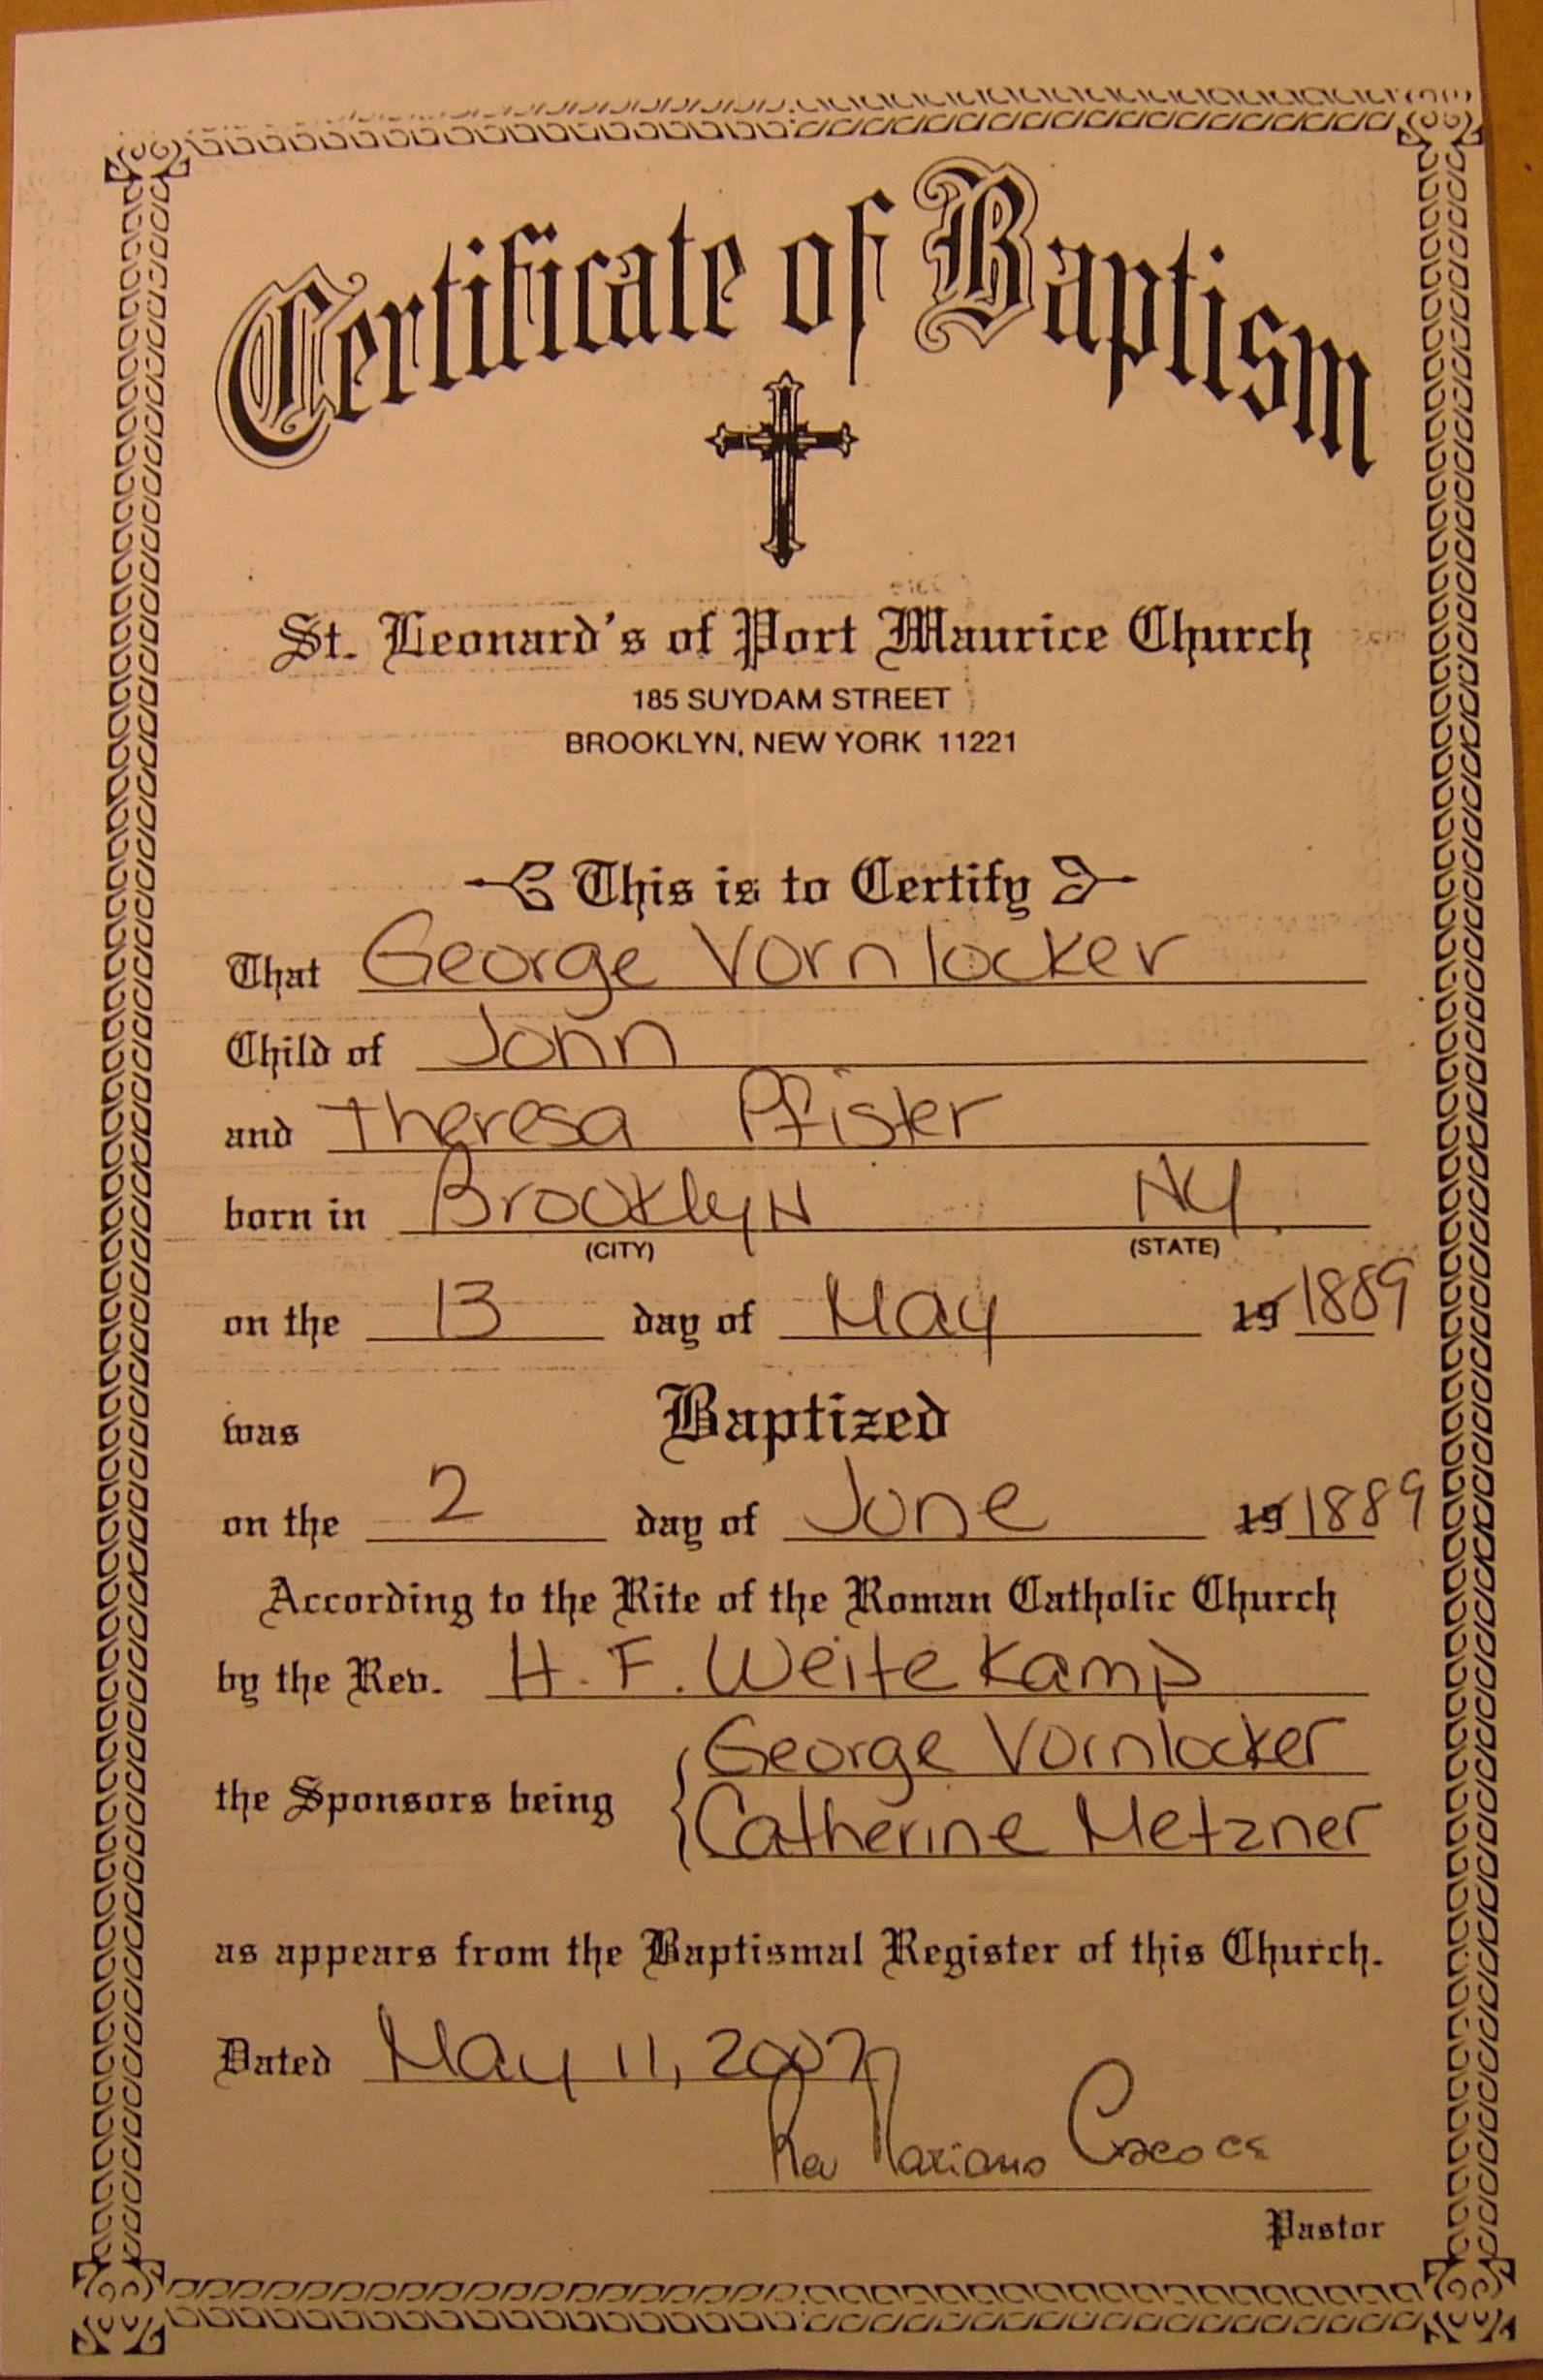 Certificate of Baptism
St. Leonard's of Port Maurice Church
185 SUYDAM STREET
BROOKLYN, NEW YORK 11221
This is to Certify
That George Vornlocker
Child of John
and Theresa Pfister
born in Brooklyn NY.
(CITY) (STATE)
on the 13 day of May 19 1889
was Baptized
on the 2 day of June 19 1889
According to the Rite of the Roman Catholic Church
by the Rev. H. F. Weitekamp
the Sponsors being George Vornlocker
Catherine Metzner
as appears from the Baptismal Register of this Church.
Dated May 11, 2007
Rev Mariano
Pastor